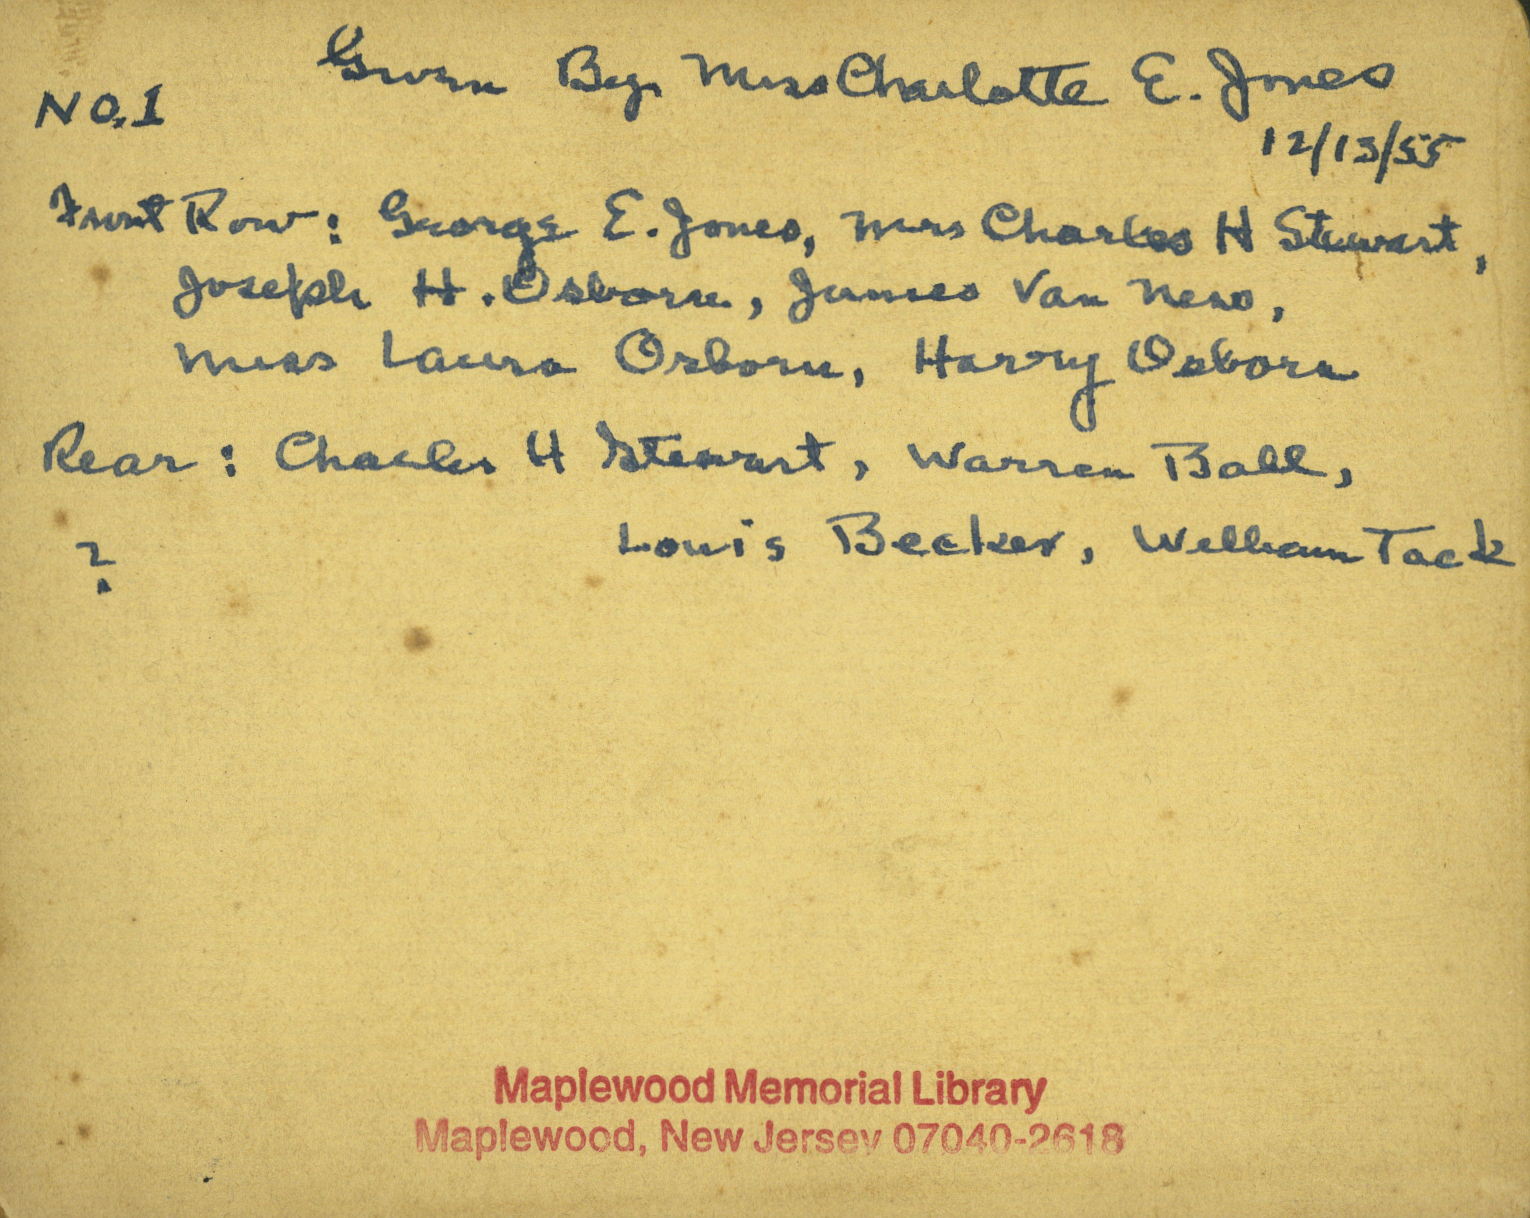 Given By. Miss Charlotte E. Jones
NO.1
12/13/55
Front Row: George E. Jones, Mrs Charles H Stewart,
Joseph H. Osborn, James Van Ness,
Miss Laura Osborn, Harry Osborn
Rear: Charles H Stewart, Warren Ball,
? Louis Becker, William Tack
Maplewood Memorial Library
Maplewood, New Jersey 07040-2618